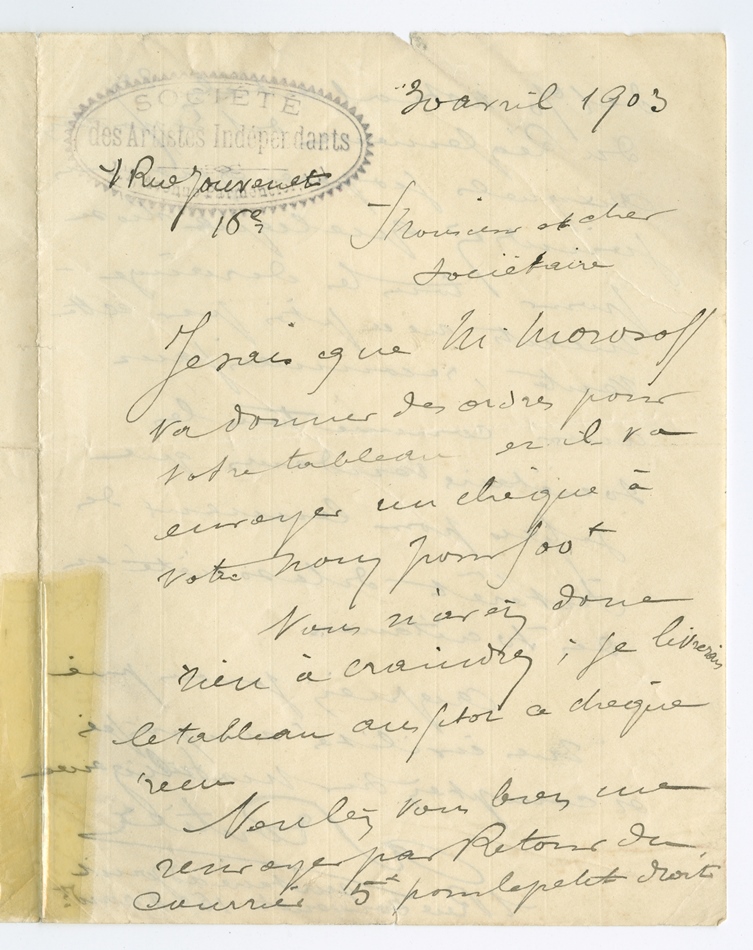 SOCIÉTÉ
des Artistes Indépendants
30 avril 1903
7 Rue Jouvenet
16e
Monsieur et cher
Sociétaire
Je sais que M. Morosoff
va donner des ordres pour
votre tableau et il va
envoyer un chèque à
votre nom pour 500f
Vous n'avez donc
rien à craindre ; je livrerais
le tableau aussitôt ce chèque
recu
Voulez vous bien me
renvoyer par Retour du
courrier 5f pour le petit droit